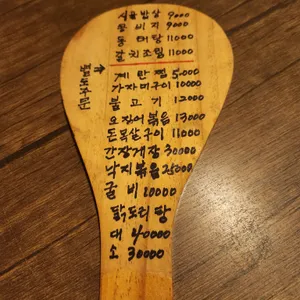 시골밥상 9000
콩비지 9000
동태탕 11000
갈치조림 11000
별도주문 →
계란찜 5,000
가자미구이 10000
불고기 12000
오징어볶음 13000
돈목살구이 11000
간장게장 30000
낙지볶음 25000
굴비 20000
닭도리탕
대 40000
소 30000